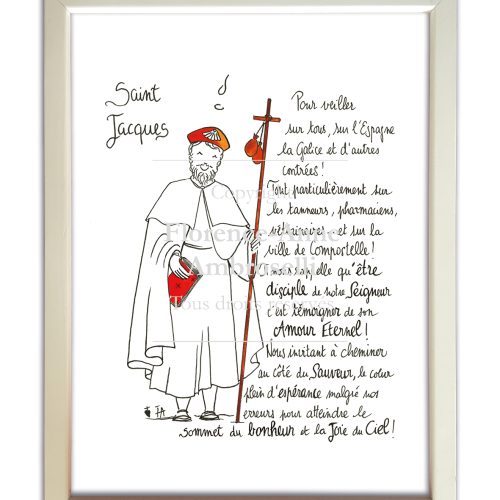 Saint
Jacques
Pour veiller
sur tous, sur l'Espagne
la Galice et d'autres
contrées!
Tout particulièrement sur
les tanneurs, pharmaciens,
vétérinaires et sur la
ville de Compostelle!
nous rappelle qu'être
disciple de notre Seigneur
c'est témoigner de son
Amour Eternel!
Nous invitant à cheminer
au côté du Sauveur, le cœur
plein d'espérance malgré nos
erreurs pour atteindre le
sommet du bonheur et la Joie du Ciel!
FA
Copyright
Florence-Anne
Ambroselli
Tous droits réservés